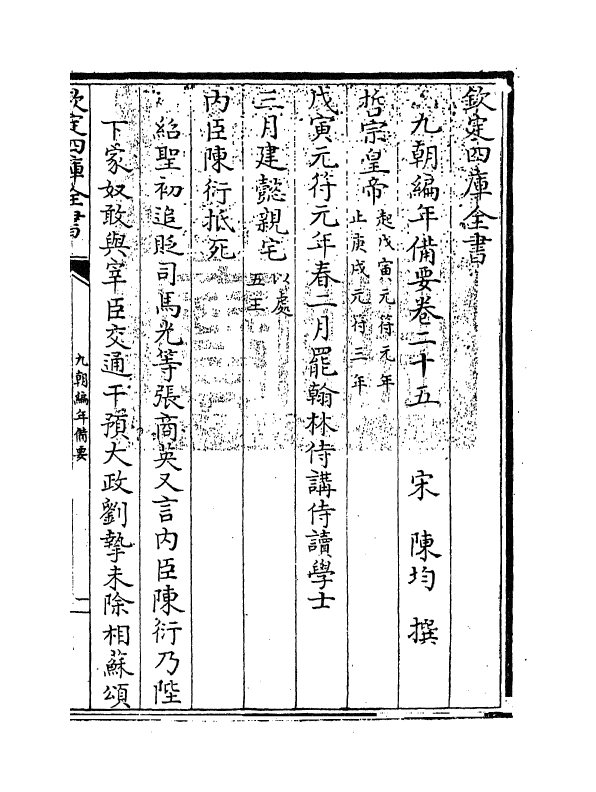 欽定四庫全書
九朝編年備要卷二十五　　宋　陳均　撰
哲宗皇帝
起戊寅元符元年
止庚戌元符三年
戊寅元符元年春二月罷翰林侍講侍讀學士
三月建懿親宅
以處
五王
内臣陳衍抵死
紹聖初追貶司馬光等張商英又言内臣陳衍乃陛
下家奴敢與宰臣交通干預大政劉摯未除相蘇頌
欽定四庫全書
九朝編年備要
一